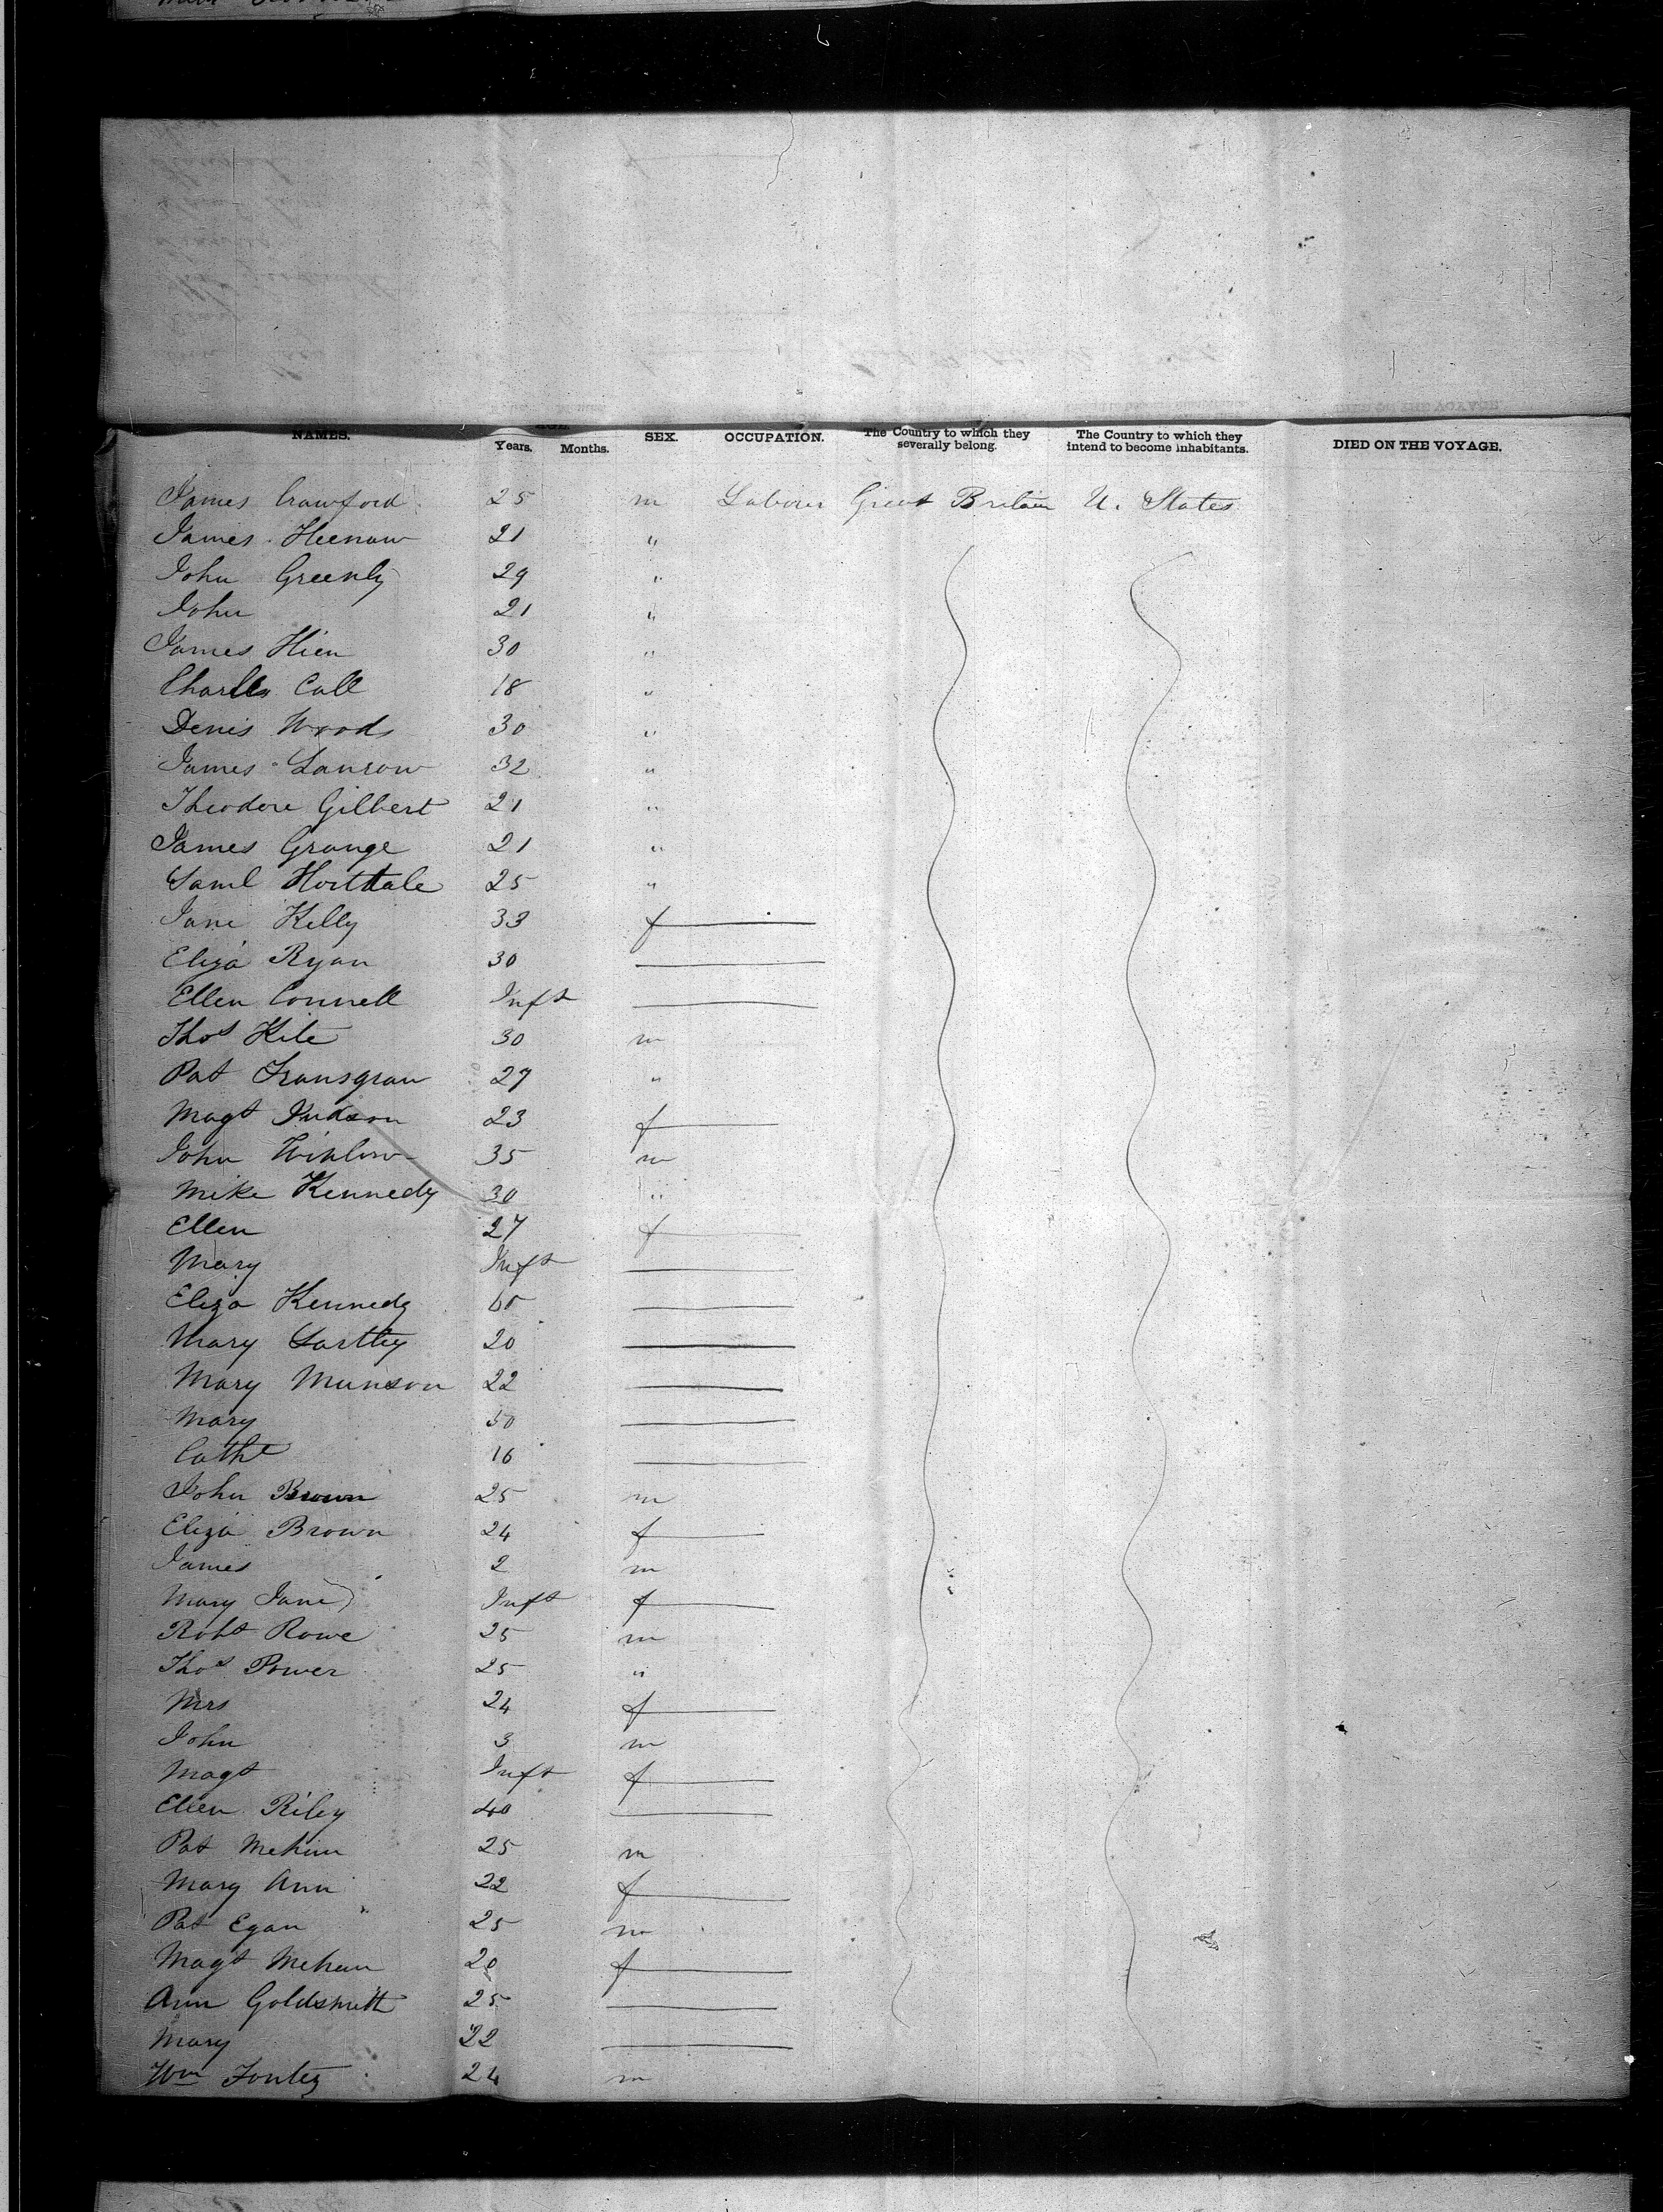 NAMES. AGE. Years. Months. SEX. OCCUPATION. The Country to which they severally belong. The Country to which they intend to become inhabitants. DIED ON THE VOYAGE.
James Crawford 25 m Laborer Great Britain U. States
James Heenan 21 "
John Greenly 29 "
John 21 "
James Hien 30 "
Charles Call 18 "
Denis Woods 30 "
James 32 "
Theodore Gilbert 21 "
James Grange 21 "
Saml 25 "
Jane Kelly 33 f
Eliza Ryan 30
Ellen Connell Inft
Thos Kite 30 m
Pat 27 "
Magt Judson 23 f
John 35 m
Mike Kennedy 30 "
Ellen 27 f
Mary Inft
Eliza Kennedy
Mary 20
Mary Munson 22
Mary 50
Cathe 16
John Brown 25 m
Eliza Brown 24 f
James 2 m
Mary Jane Inft f
Robt Rowe 25 m
Thos Power 25 "
Mrs 24 f
John 3 m
Magt Inft f
Ellen Riley 40
Pat Mehan 25 m
Mary Ann 22 f
Pat Egan 25 m
Magt Mehan 20 f
Ann Goldsmith 25
Mary 22
Wm 24 m